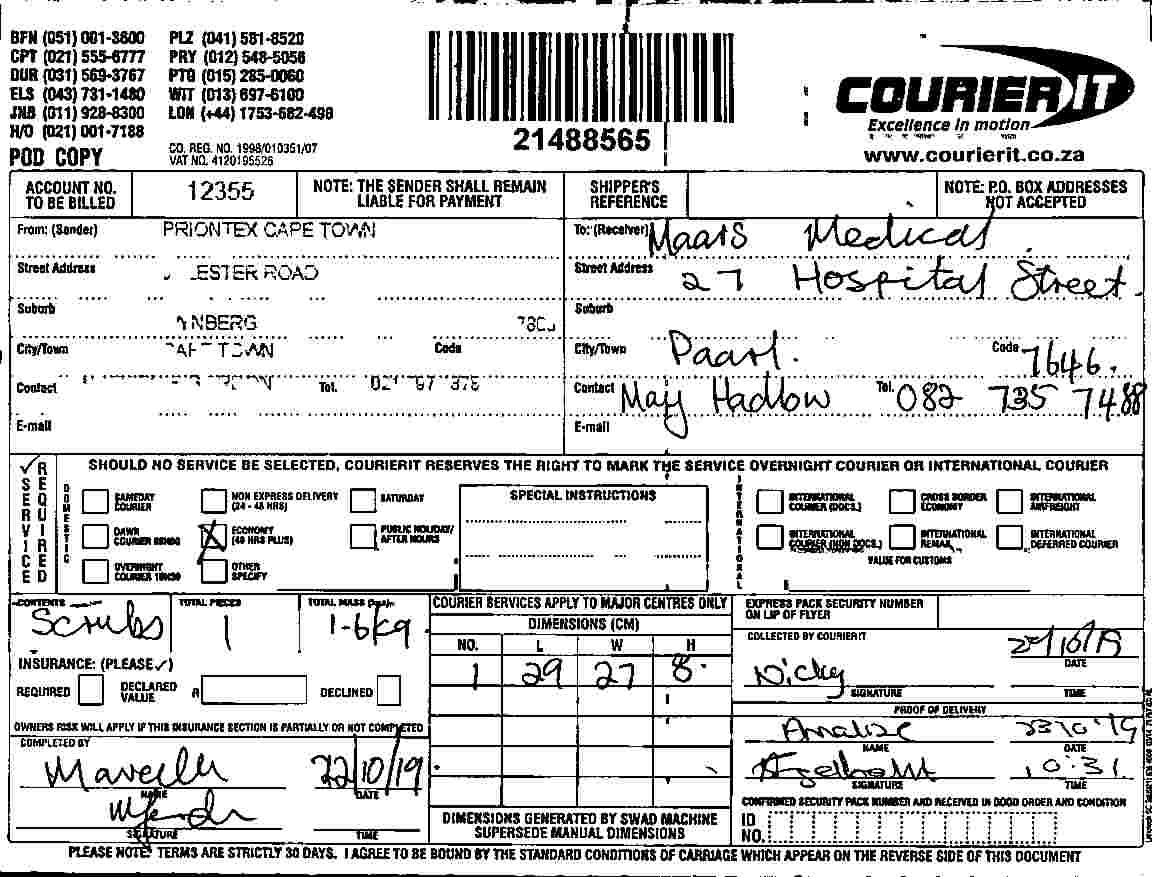 BFN (051) 001-3600 PLZ (041) 581-8520
CPT (021) 555-6777 PRY (012) 548-5056
DUR (031) 569-3767 PTG (015) 285-0060
ELS (043) 731-1480 WIT (013) 697-6100
JNB (011) 928-8300 LON (+44) 1753-682-498
H/O (021) 001-7188
POD COPY
CO. REG. NO. 1998/010351/07
VAT NO. 4120195526
21488565
COURIER IT
Excellence in motion
www.courierit.co.za
ACCOUNT NO. TO BE BILLED 12355
NOTE: THE SENDER SHALL REMAIN LIABLE FOR PAYMENT
SHIPPER'S REFERENCE
NOTE: P.O. BOX ADDRESSES NOT ACCEPTED
From: (Sender) PRIONTEX CAPE TOWN
Street Address ESTER ROAD
Suburb NBERG
City/Town TOWN Code
Contact Tel.
E-mail
To: (Receiver) Maars Medical
Street Address 27 Hospital Street
Suburb
City/Town Paarl. Code 7646.
Contact Hadlow Tel. 082 735 7488
E-mail
SERVICE REQUIRED
SHOULD NO SERVICE BE SELECTED, COURIERIT RESERVES THE RIGHT TO MARK THE SERVICE OVERNIGHT COURIER OR INTERNATIONAL COURIER
DOMESTIC
SAMEDAY COURIER
NON EXPRESS DELIVERY (24 - 48 HRS)
SATURDAY
DAWN COURIER
ECONOMY (48 HRS PLUS)
PUBLIC HOLIDAY/ AFTER HOURS
OVERNIGHT COURIER 10H30
OTHER SPECIFY
SPECIAL INSTRUCTIONS
INTERNATIONAL
INTERNATIONAL COURIER (DOCS.)
CROSS BORDER ECONOMY
INTERNATIONAL AIRFREIGHT
INTERNATIONAL COURIER (NON DOCS.)
INTERNATIONAL REMAIL
INTERNATIONAL DEFERRED COURIER
VALUE FOR CUSTOMS
CONTENTS Scrubs
TOTAL PIECES 1
TOTAL MASS 1-6kg
INSURANCE: (PLEASE ✓)
REQUIRED DECLARED VALUE R DECLINED
OWNERS RISK WILL APPLY IF THIS INSURANCE SECTION IS PARTIALLY OR NOT COMPLETED
COMPLETED BY
22/10/19
NAME DATE
SIGNATURE TIME
COURIER SERVICES APPLY TO MAJOR CENTRES ONLY
DIMENSIONS (CM)
NO. L W H
1 29 27 8
DIMENSIONS GENERATED BY SWAD MACHINE SUPERSEDE MANUAL DIMENSIONS
EXPRESS PACK SECURITY NUMBER ON LIP OF FLYER
COLLECTED BY COURIERIT
Nicky
SIGNATURE DATE
TIME
PROOF OF DELIVERY
NAME DATE
10:31
SIGNATURE TIME
CONFIRMED SECURITY PACK NUMBER AND RECEIVED IN GOOD ORDER AND CONDITION
ID NO.
PLEASE NOTE: TERMS ARE STRICTLY 30 DAYS. I AGREE TO BE BOUND BY THE STANDARD CONDITIONS OF CARRIAGE WHICH APPEAR ON THE REVERSE SIDE OF THIS DOCUMENT